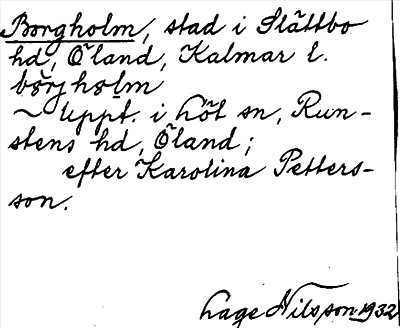 Borgholm, stad i Slättbo
hd, Öland, Kalmar l.
bårjhålm
~ Uppt. i Löt sn, Run-
stens hd, Öland;
efter Karolina Petters-
son.
Lage Nilsson 1932